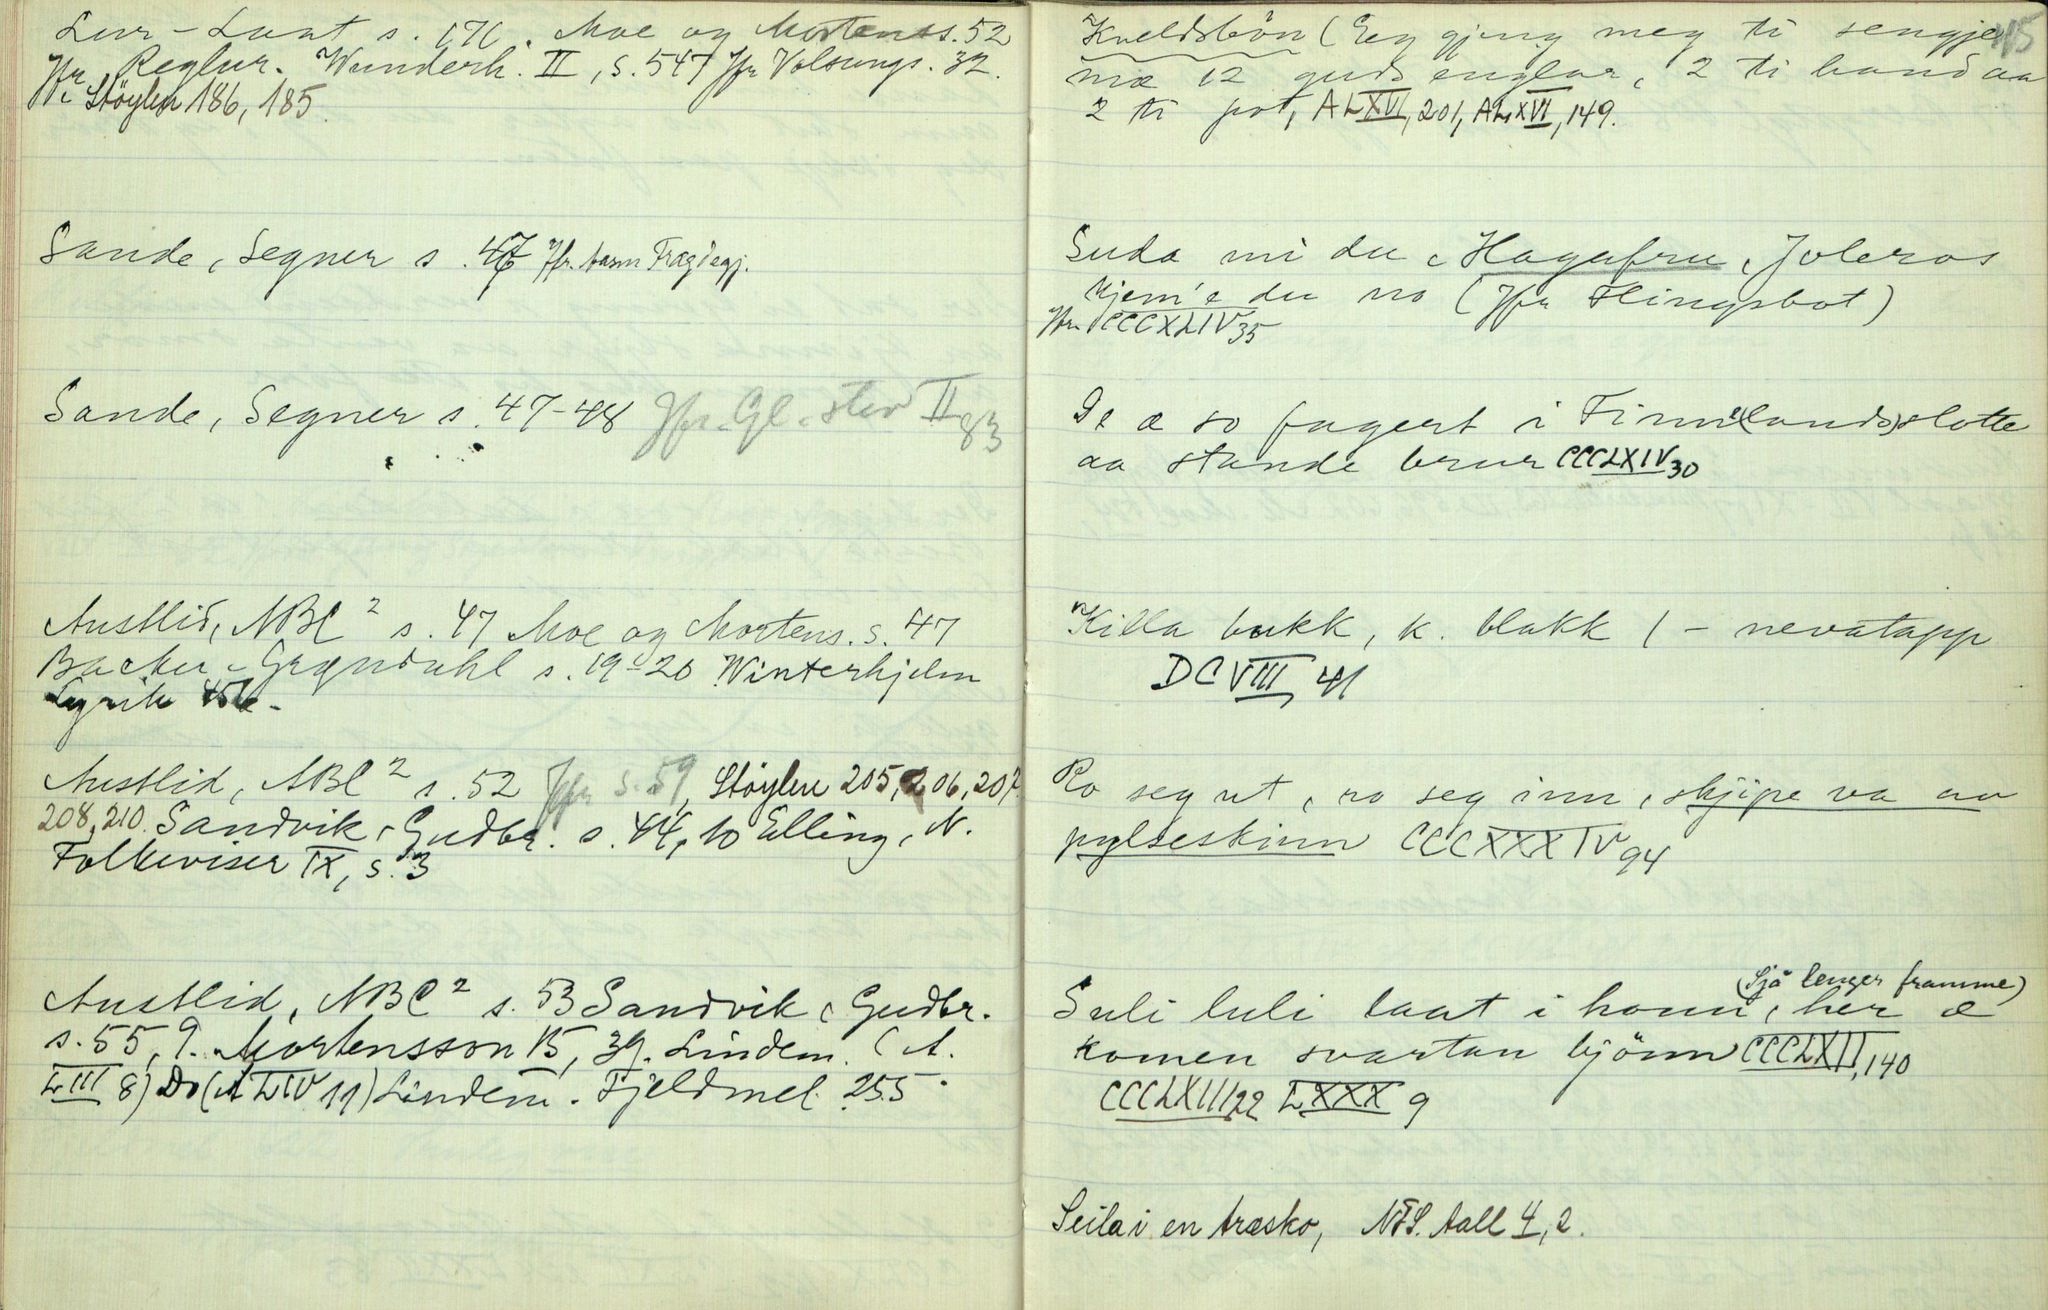 Lur-Laat s. 171. Moe og Mortenss. 52
Jfr. Reglur. Wunderh. II, s. 547 Jfr Volsungs. 32.
Jfr. Støylen 186, 185.
Sande, Segner s. 47 Jfr. Fragdegj.
Sande, Segner s. 47-48 Jfr. Gl. stev II 83
Austlid, ABC² s. 47 Moe og Mortens. s. 47
Backer-Grøndahl s. 19-20 Winterhjelm
Lyrik
Austlid, ABC² s. 52 Jfr s. 59, Støylen 205, 206, 207
208, 210. Sandvik, Gudbr. s. 44, 10 Elling, N.
Folkeviser IX, s. 3
Austlid, ABC² s. 53 Sandvik, Gudbr.
s. 55, 9. Mortensson 15, 39. Lindem. (A.
LIII 8) Do (A LIV 11) Lindem. Fjeldmel. 255.
115
Kveldsbön (Eeg gjeng meg ti sengje
mæ 12 guds englar, 2 ti hand aa
2 ti fot, A LXVI, 201, A LXVI, 149.
Suda mi du, Hagafru, Joleros
kjem'e du no (Jfr Flingsbot)
Jfr. CCCXLIV 35
De æ so fagert i Finne(lands)slotte
aa stande brur CCCLXIV 30
Killa bukk, k. blakk (- nevatapp
DCVIII, 41
Ro seg ut, ro seg inn, skjipe va av
pylseskinn CCCXXXIV 94
(Sjå lenger framme)
Suli luli laat i honn, her æ
komen svartan bjönn CCCLXII, 140
CCCLXIII 22 LXXX 9
Seila i en træsko, NFS. Aall 4, 2.